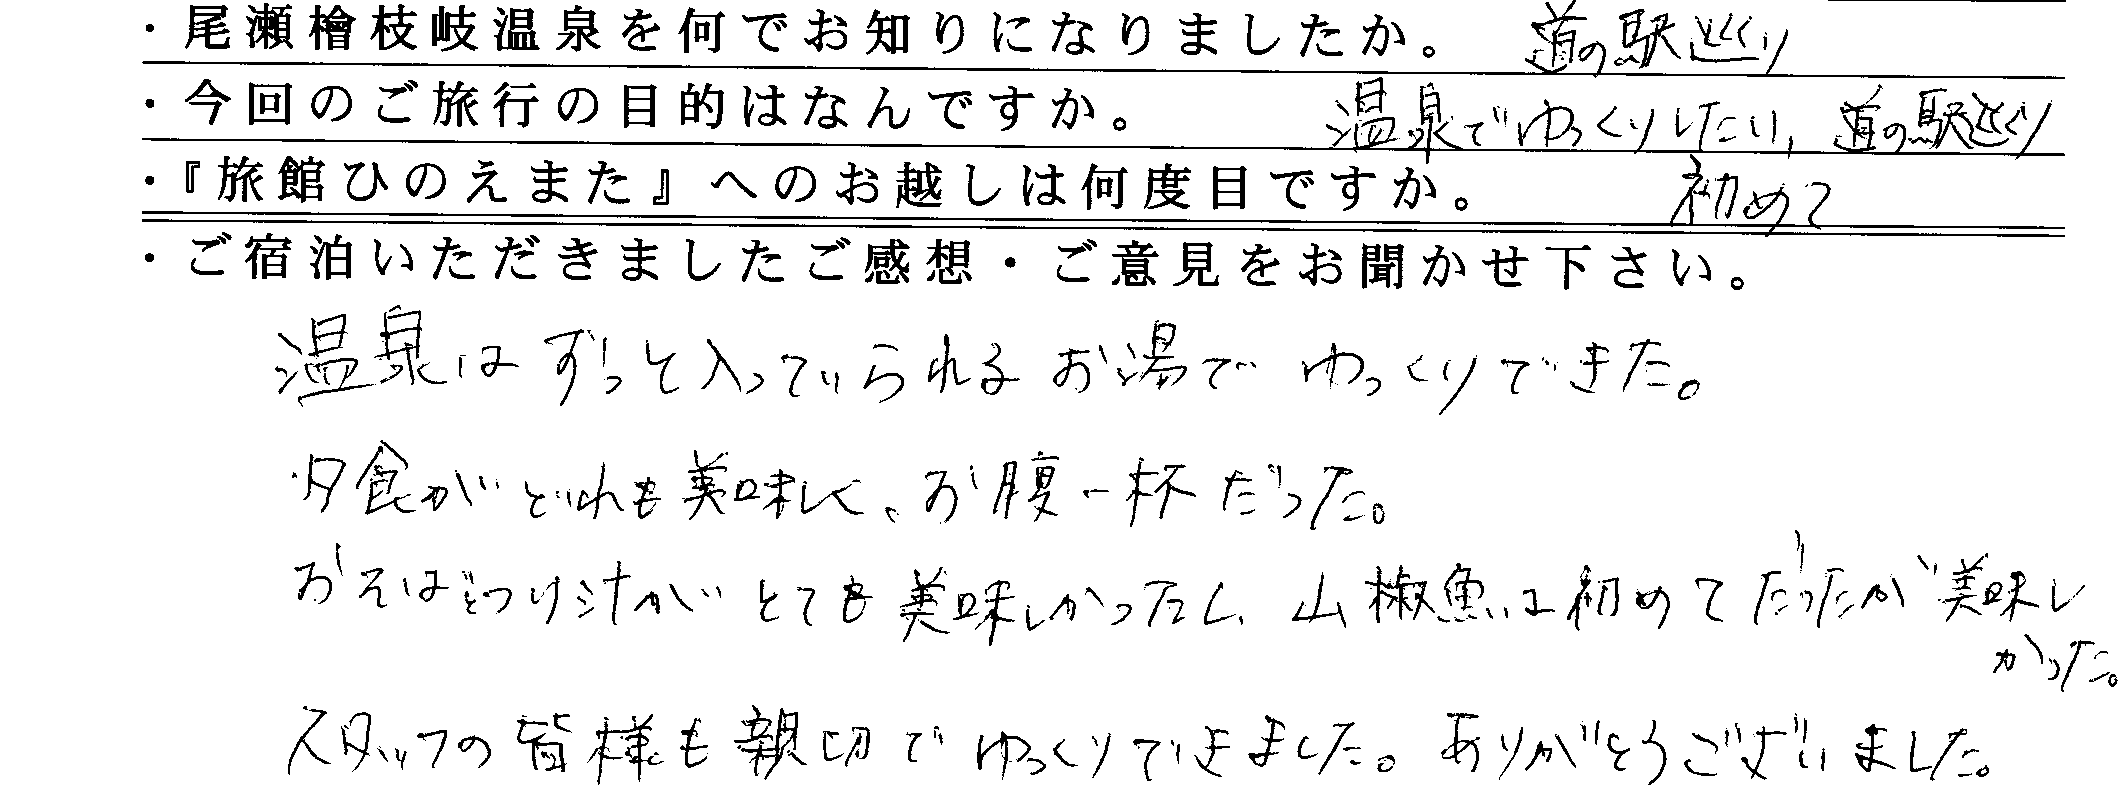 ・尾瀬檜枝岐温泉を何でお知りになりましたか。 道の駅巡り
・今回のご旅行の目的はなんですか。 温泉でゆっくりしたい、道の駅巡り
・『旅館ひのえまた』へのお越しは何度目ですか。 初めて
・ご宿泊いただきましたご感想・ご意見をお聞かせ下さい。
温泉はずっと入っていられるお湯でゆっくりできた。
夕食がどれも美味しく、お腹一杯だった。
おそばとつけ汁がとても美味しかったし、山椒魚は初めてだったが美味し
かった。
スタッフの皆様も親切でゆっくりできました。ありがとうございました。